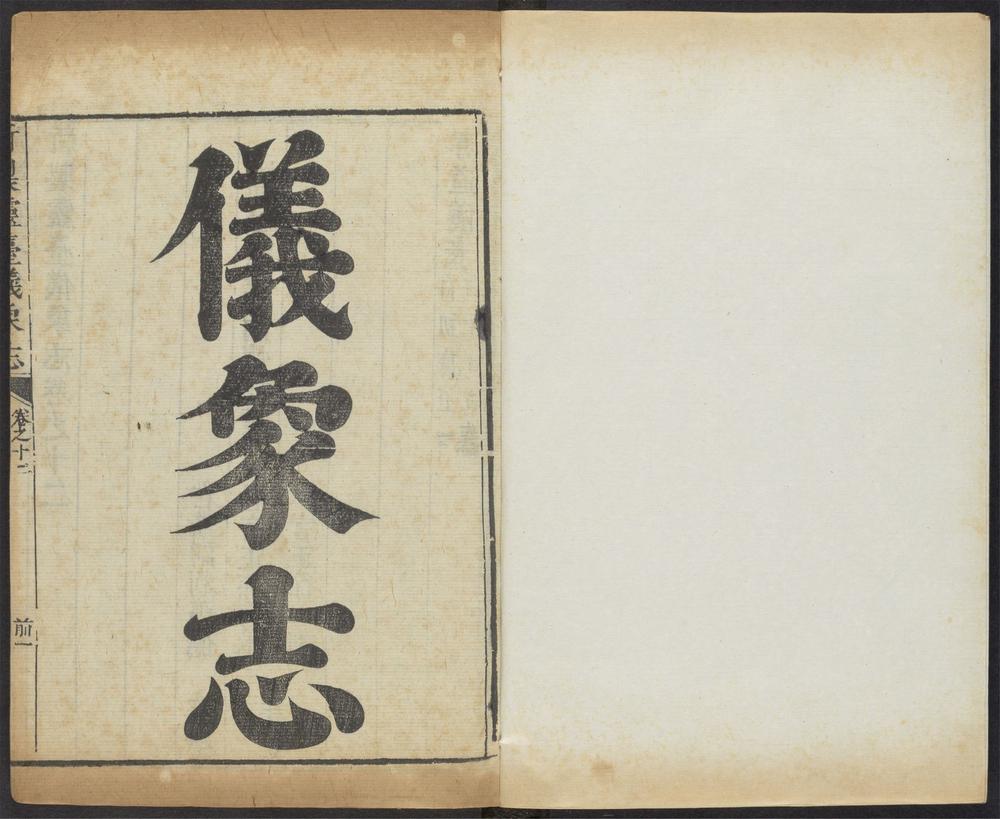 儀象志
靈臺儀象志
卷之十二
前一